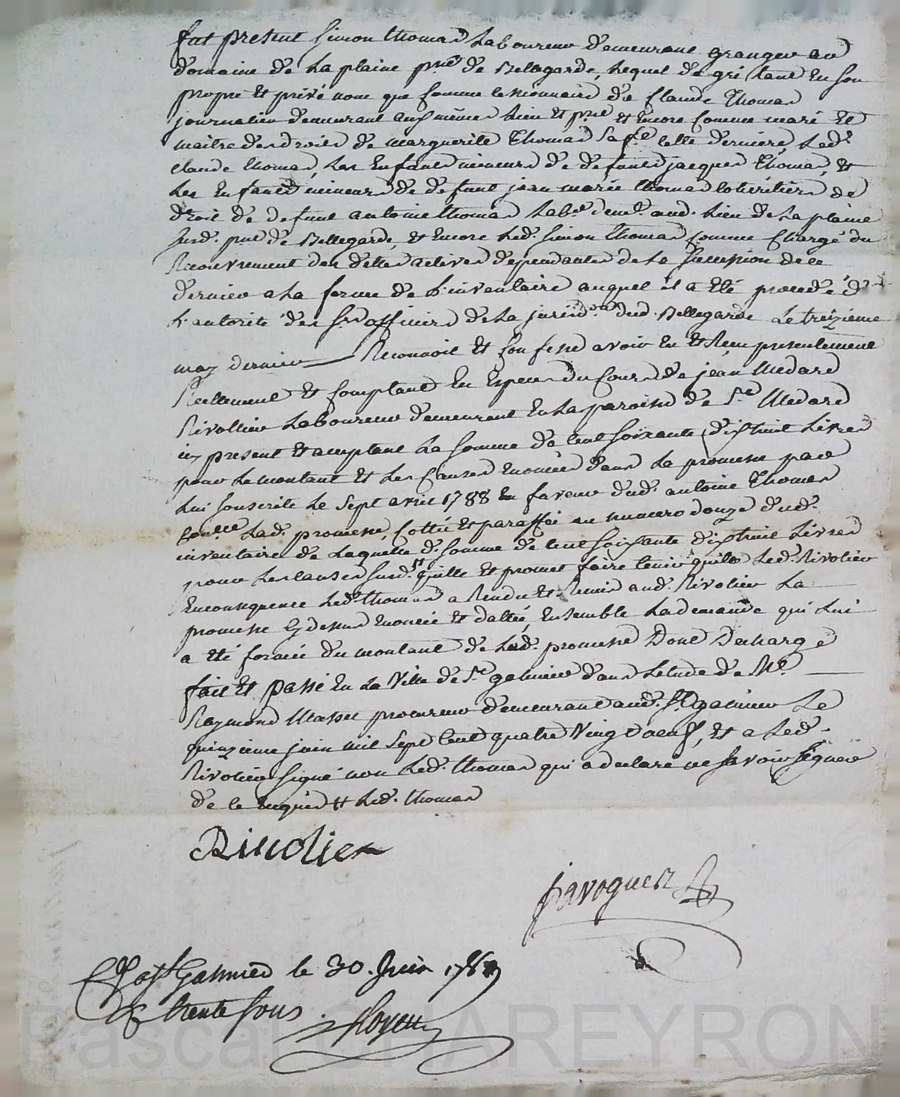 fut present Simon thomas Laboureur demeurant granger au
domaine de la plaine psse de Bellegarde, lequel de gré tant en son
propre et privé nom que comme cessionnaire de Claude Thomas
journalier demeurant au même lieu et psse et Encore comme mari et
maitre des droits de marguerite Thomas sa fe celle derniere, led.
claude thomas, Les Enfants mineurs de defunt jacques Thomas, et
les Enfants mineurs de defunt jean marie thomas cohéritiers de
droit de defunt antoine thomas Labr demt aud. Lieu de la plaine
susd. psse de Bellegarde, et Encore led. Simon Thomas comme Chargé du
recouvrement des dettes actives dependantes de la succession de ce
dernier a la forme de l'inventaire auquel il a été procedé d
l'autorité des srs officiers de la juridon dud. Bellegarde Le treizieme
may dernier Reconnoit et Confesse avoir eu et Reçu presentement
Reellement et Comptant En Especes du Cours de jean Medard
Rivollier Laboureur demeurant En la paroisse de St Medard
icy present et acceptant La somme de Cent soixante dixhuit Livres
pour le montant et les Causes Enoncées dans la promesse par
lui souscrite le sept avril 1788 En faveur dud. antoine Thomas
Lad. promesse, Cottée et paraffée au numero douze dud.
inventaire de laquelle d. somme de Cent soixante dixhuit Livres
pour les causes susd. quitte et promet faire tenir quitte led. Rivolier
En consequence led. thomas a Rendu et Remis aud. Rivolier La
promesse cydessus Enoncée et dattée, Ensemble la demande qui lui
a été formée du montant de lad. promesse Dont Decharge
fait et passé En la Ville de St galmier dans letude de Me
Raymond Massu procureur demeurant aud. St galmier Le
quinzieme juin mil sept Cent quatre Vingt neuf, et a led.
Rivolier signé non led. thomas qui a declaré ne savoir signer
de ce Enquis led. thomas
Rivolier
javoguer
Co. a St Galmier le 30. Juin 1789
R trente sous.
Pascal CHAREYRON